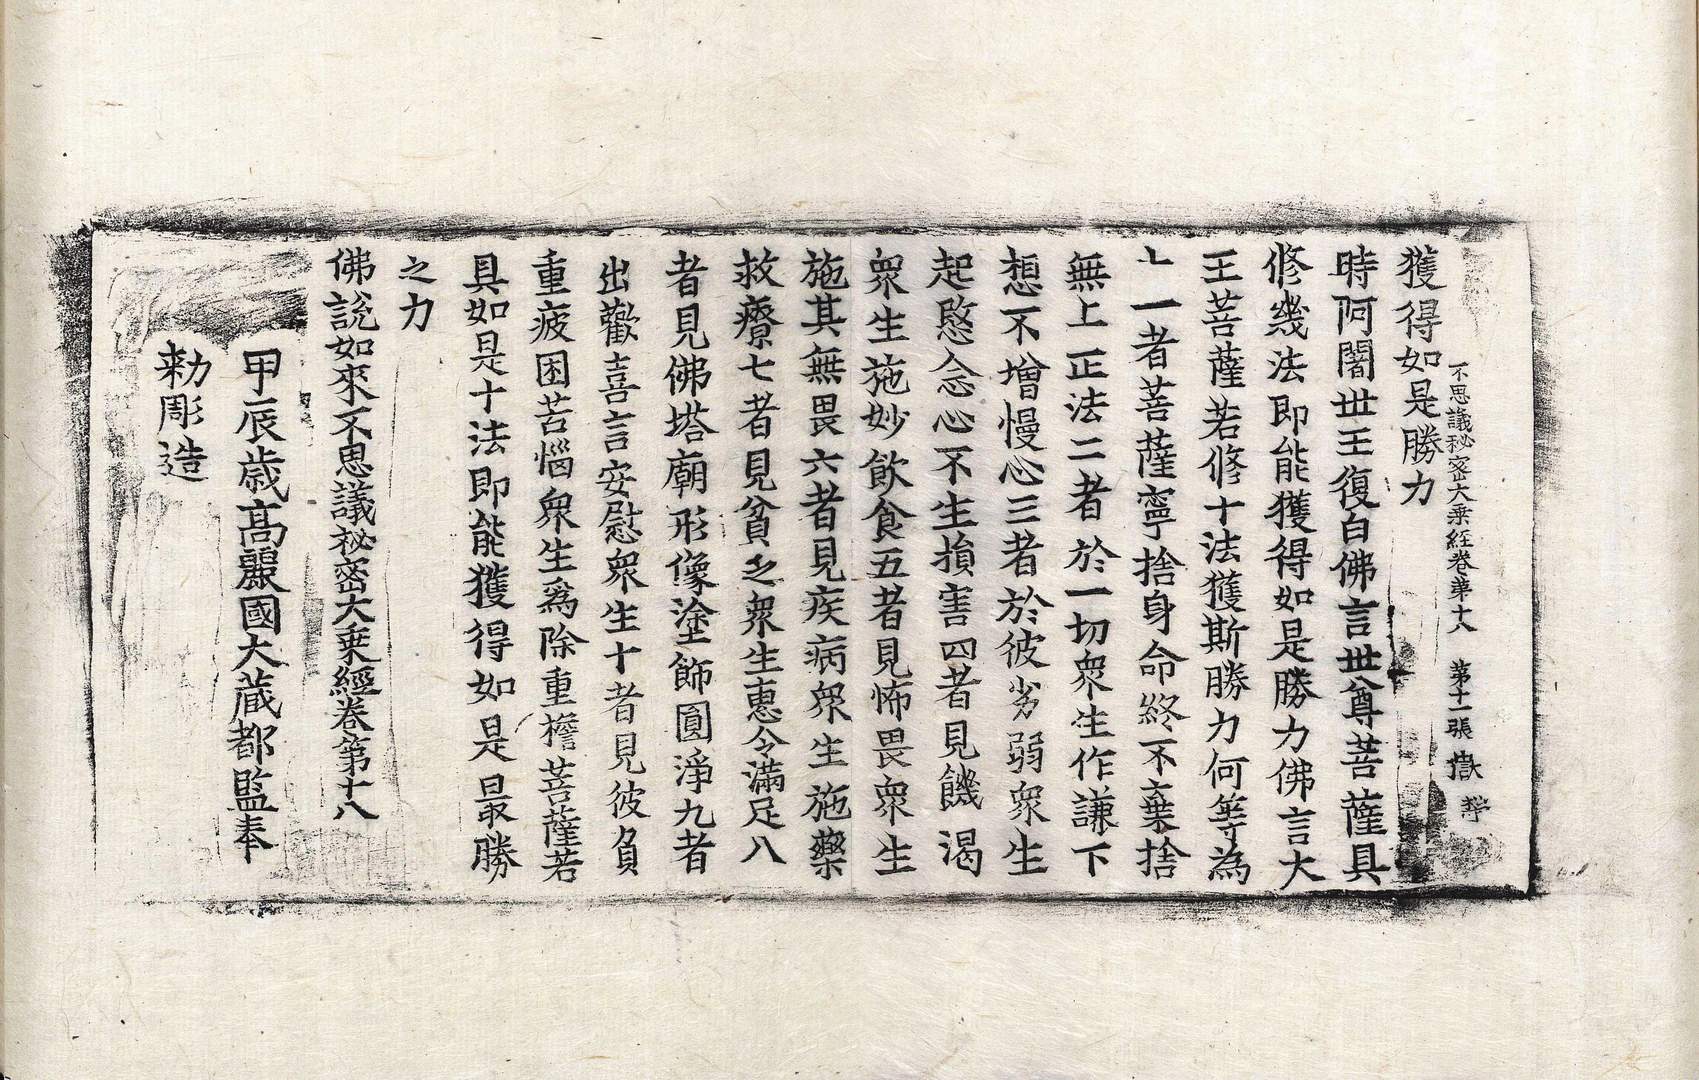 獲得如是勝力
不思議秘密大乗經卷第十八 第十一張 嶽
時阿闍世王復白佛言世尊菩薩具
修幾法即能獲得如是勝力佛言大
王菩薩若修十法獲斯勝力何等為
十一者菩薩寧捨身命終不棄捨
無上正法二者於一切衆生作謙下
想不增慢心三者於彼劣弱衆生
起愍念心不生損害四者見饑渴
衆生施妙飲食五者見怖畏衆生
施其無畏六者見疾病衆生施藥
救療七者見貧乏衆生惠令滿足八
者見佛塔廟形像塗飾圓淨九者
出歡喜言安慰衆生十者見彼負
重疲困苦惱衆生爲除重擔菩薩若
具如是十法即能獲得如是最勝
之力
佛說如來不思議秘密大乗經卷第十八
甲辰歲高麗國大藏都監奉
勅彫造